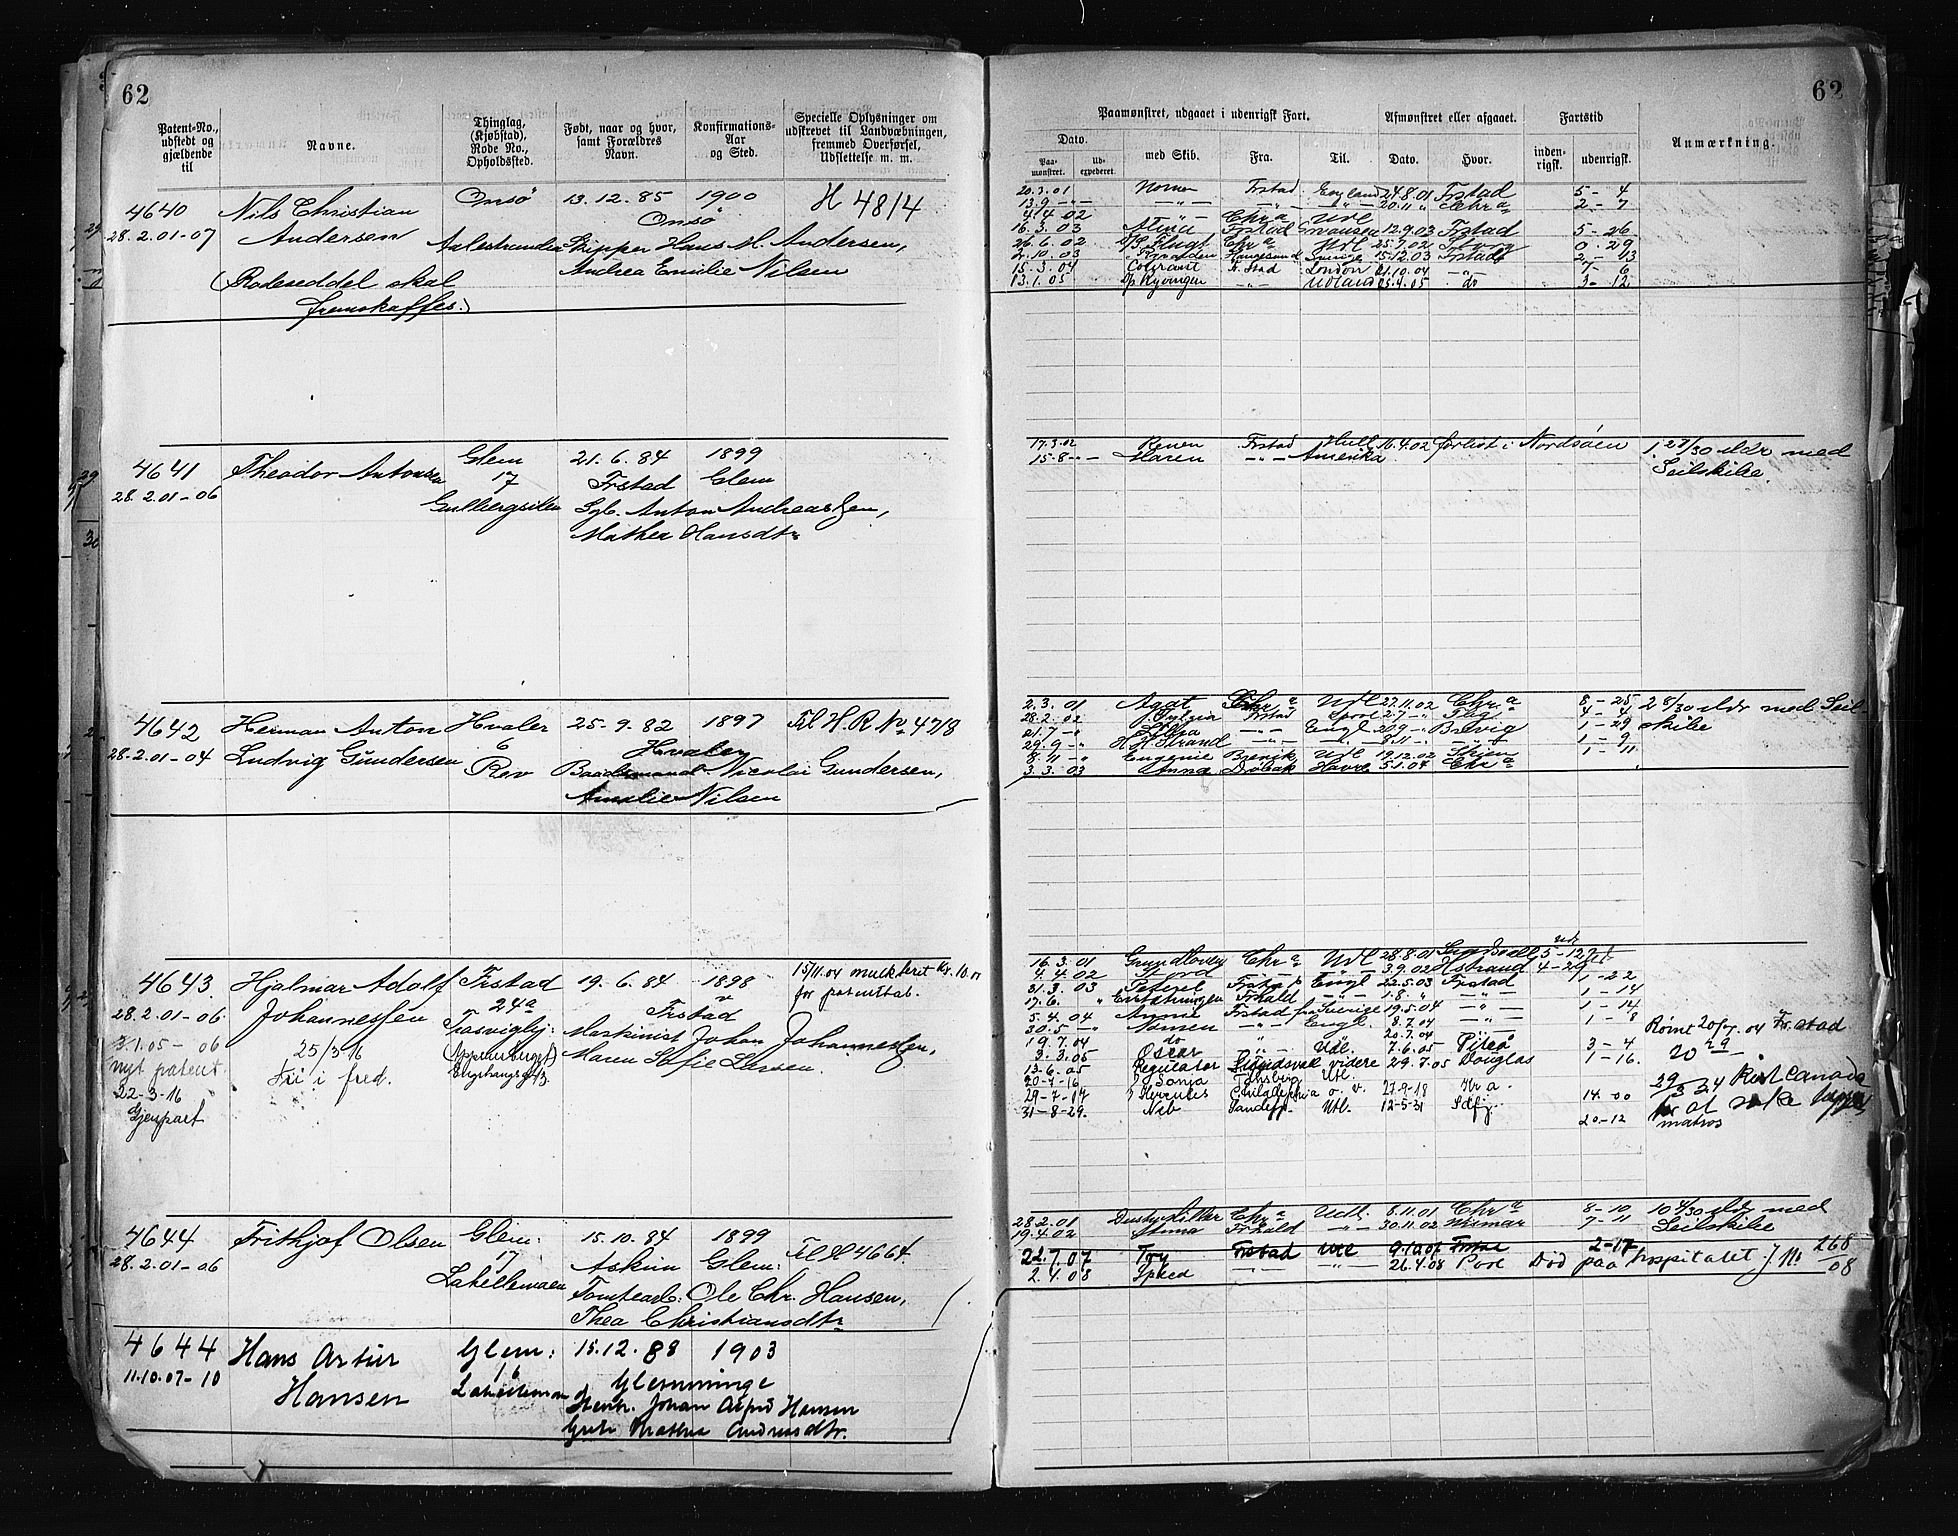 62
Patent-No., udstedt og gjældende til
Navne.
Thinglag, (Kjøbstad), Rode No., Opholdssted.
Født, naar og hvor, samt Forældres Navn.
Konfirmations-Aar og Sted.
Specielle Oplysninger om udskrevet til Landvæbningen, fremmed Overførsel, Udslettelse m. m.
4640 Nils Christian Onsø 13.12.85 1900 H 4814
28.2.01-07 Andersen Onsø
Aalestranden Skipper Hans M. Andersen,
Andrea Emilie Nilsen
(Rodeseddel skal
fremskaffes.)
4641 Theodor Antonsen Glem 21.6.84 1899
28.2.01-06 17 Frstad Glem
Gullbergsilen Sgb. Anton Andreassen,
Mathea Hansdtr
4642 Herman Anton Hvaler 25.9.82 1897 Til H.R.No. 4718
28.2.01-04 Ludvig Gundersen 6 Hvaler
Rev Baadsmand Nicolai Gundersen,
Amalie Nilsen
4643 Hjalmar Adolf Frstad 19.6.84 1898 15/11.04 mulkteret Kr. 10.00
for patenttab.
28.2.01-06 Johannessen 24a Frstad
Trosvigbj: Maskinist Johan Johannessen,
1.05-06 25/3 16 Maren Sofie Larsen.
nyt patent. Fri i fred.
22-3-16
Gjenpart
4644 Frithjof Olsen Glem: 15.10.84 1899 Til H 4664
28.2.01-06 17 Askim Glem:
Lahellemoen Tomtearb: Ole Chr. Hansen,
Thea Christiansdtr
4644 Hans Artur Glem: 15.12.88 1903
11.10.07-10 Hansen 16 Glemminge
Lahellemoen Stenh. Johan Alfred Hansen
Mathea Andreasdtr.
62
Paamønstret, udgaaet i udenrigsk Fart.
Afmønstret eller afgaaet.
Fartstid
Anmærkning.
Dato.
Paa-mønstret.
Ud-expederet.
med Skib.
Fra.
Til.
Dato.
Hvor.
inden-rigsk.
udenrigsk.
20.3.01 Norna Frstad England 24.8.01 Frstad 5-4
13.9 -"- -"- -"- -"- 20.11 " Chra 2-7
4.4.02 -"- Chra Udl
16.3.03 Frstad 12.9.03 Frstad 5-26
26.6.02 Flugt Chra Udl 25.7.02 Tborg 0-29
2.10.03 Haugesund Sverige 15.12.03 Frstad 2-13
15.3.04 Fr.stad London 21.10.04 -"- 7-6
13.1.05 Kyvingen -"- Udland 25.4.05 do 3-12
17.3.02 Renen Frstad Hull 16.4.02 forlist i Nordsøen 1 28/30 aldr med
15.8 -"- Maren -"- Amerika Seilskibe.
2.3.01 Agat Chra Udl 27.11.02 Chra 8-25 2 8/30 aldr med Seil-
28.2.02 Sylvia Frstad 2.7 -"- Fbg. 4-4 skibe
21.7 -"- -"- Engl 20.9 -"- Brevig 1-29
29.9 -"- H. H. Strand -"- -"- 8.11 -"- -"- 1-9
8.11 -"- Eugenie Brevik Udl 19.12.02 Skien 1-11
3.3.03 Anna Drøbak Havre 5.1.04 Chra
16.3.01 Grundloven Chra Udl 28.8.01 Sundsvall 5-12
4.4.02 Fjord " " 3.9.02 Hstrand 4-29
31.3.03 Peterel Frstad Engl 22.5.03 Frstad 1-22
17.6. " Erstatningen Frhald -"- 1.8 " -"- 1-14
5.4.04 Anna Frstad Sverige 19.5.04 -"- 1-14
30.5 -"- Nomen -"- Engl. 8.7.04 -"- 1-8 Rømt 20/7.04 Fr.stad
19.7.04 do " " 20.7.04 -"-
3.3.05 Oscar " Udl. 7.6.05 Piteå 3-4
13.6.05 Regulator Sundsval videre 29.7.05 Douglas 1-16.
20-7-16 Sonja Tønsberg Utl.
29-7-17 Hercules Philadelphia o. v. 27-9-18 Kr a. 14.00
31-8-29. Nib Sandefj. Utl. 12-5-31 Sdfj. 20-12 matros
28.2.01 Chra Udl. 8.11.01 Chra 8-10 10 4/30 aldr med
19.4.02 Anna Frhald -"- 30.11.02 Wismar 7-11 Seilskibe
22.7.07 Try Frstad Udl 9.10.07 Frstad 2-17
2.4.08 Speed -"- -"- 26.4.08 Poole Død paa hospitalet J. No 268/08